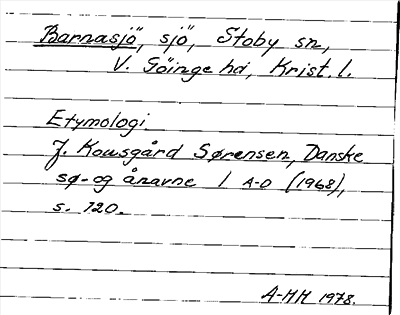 Barnasjö, sjö, Stoby sn,
V. Göinge hd, Krist. l.
Etymologi.
J. Kousgård Sørensen, Danske
sø- og ånavne 1 A-D (1968),
s. 120.
A-MH 1978.